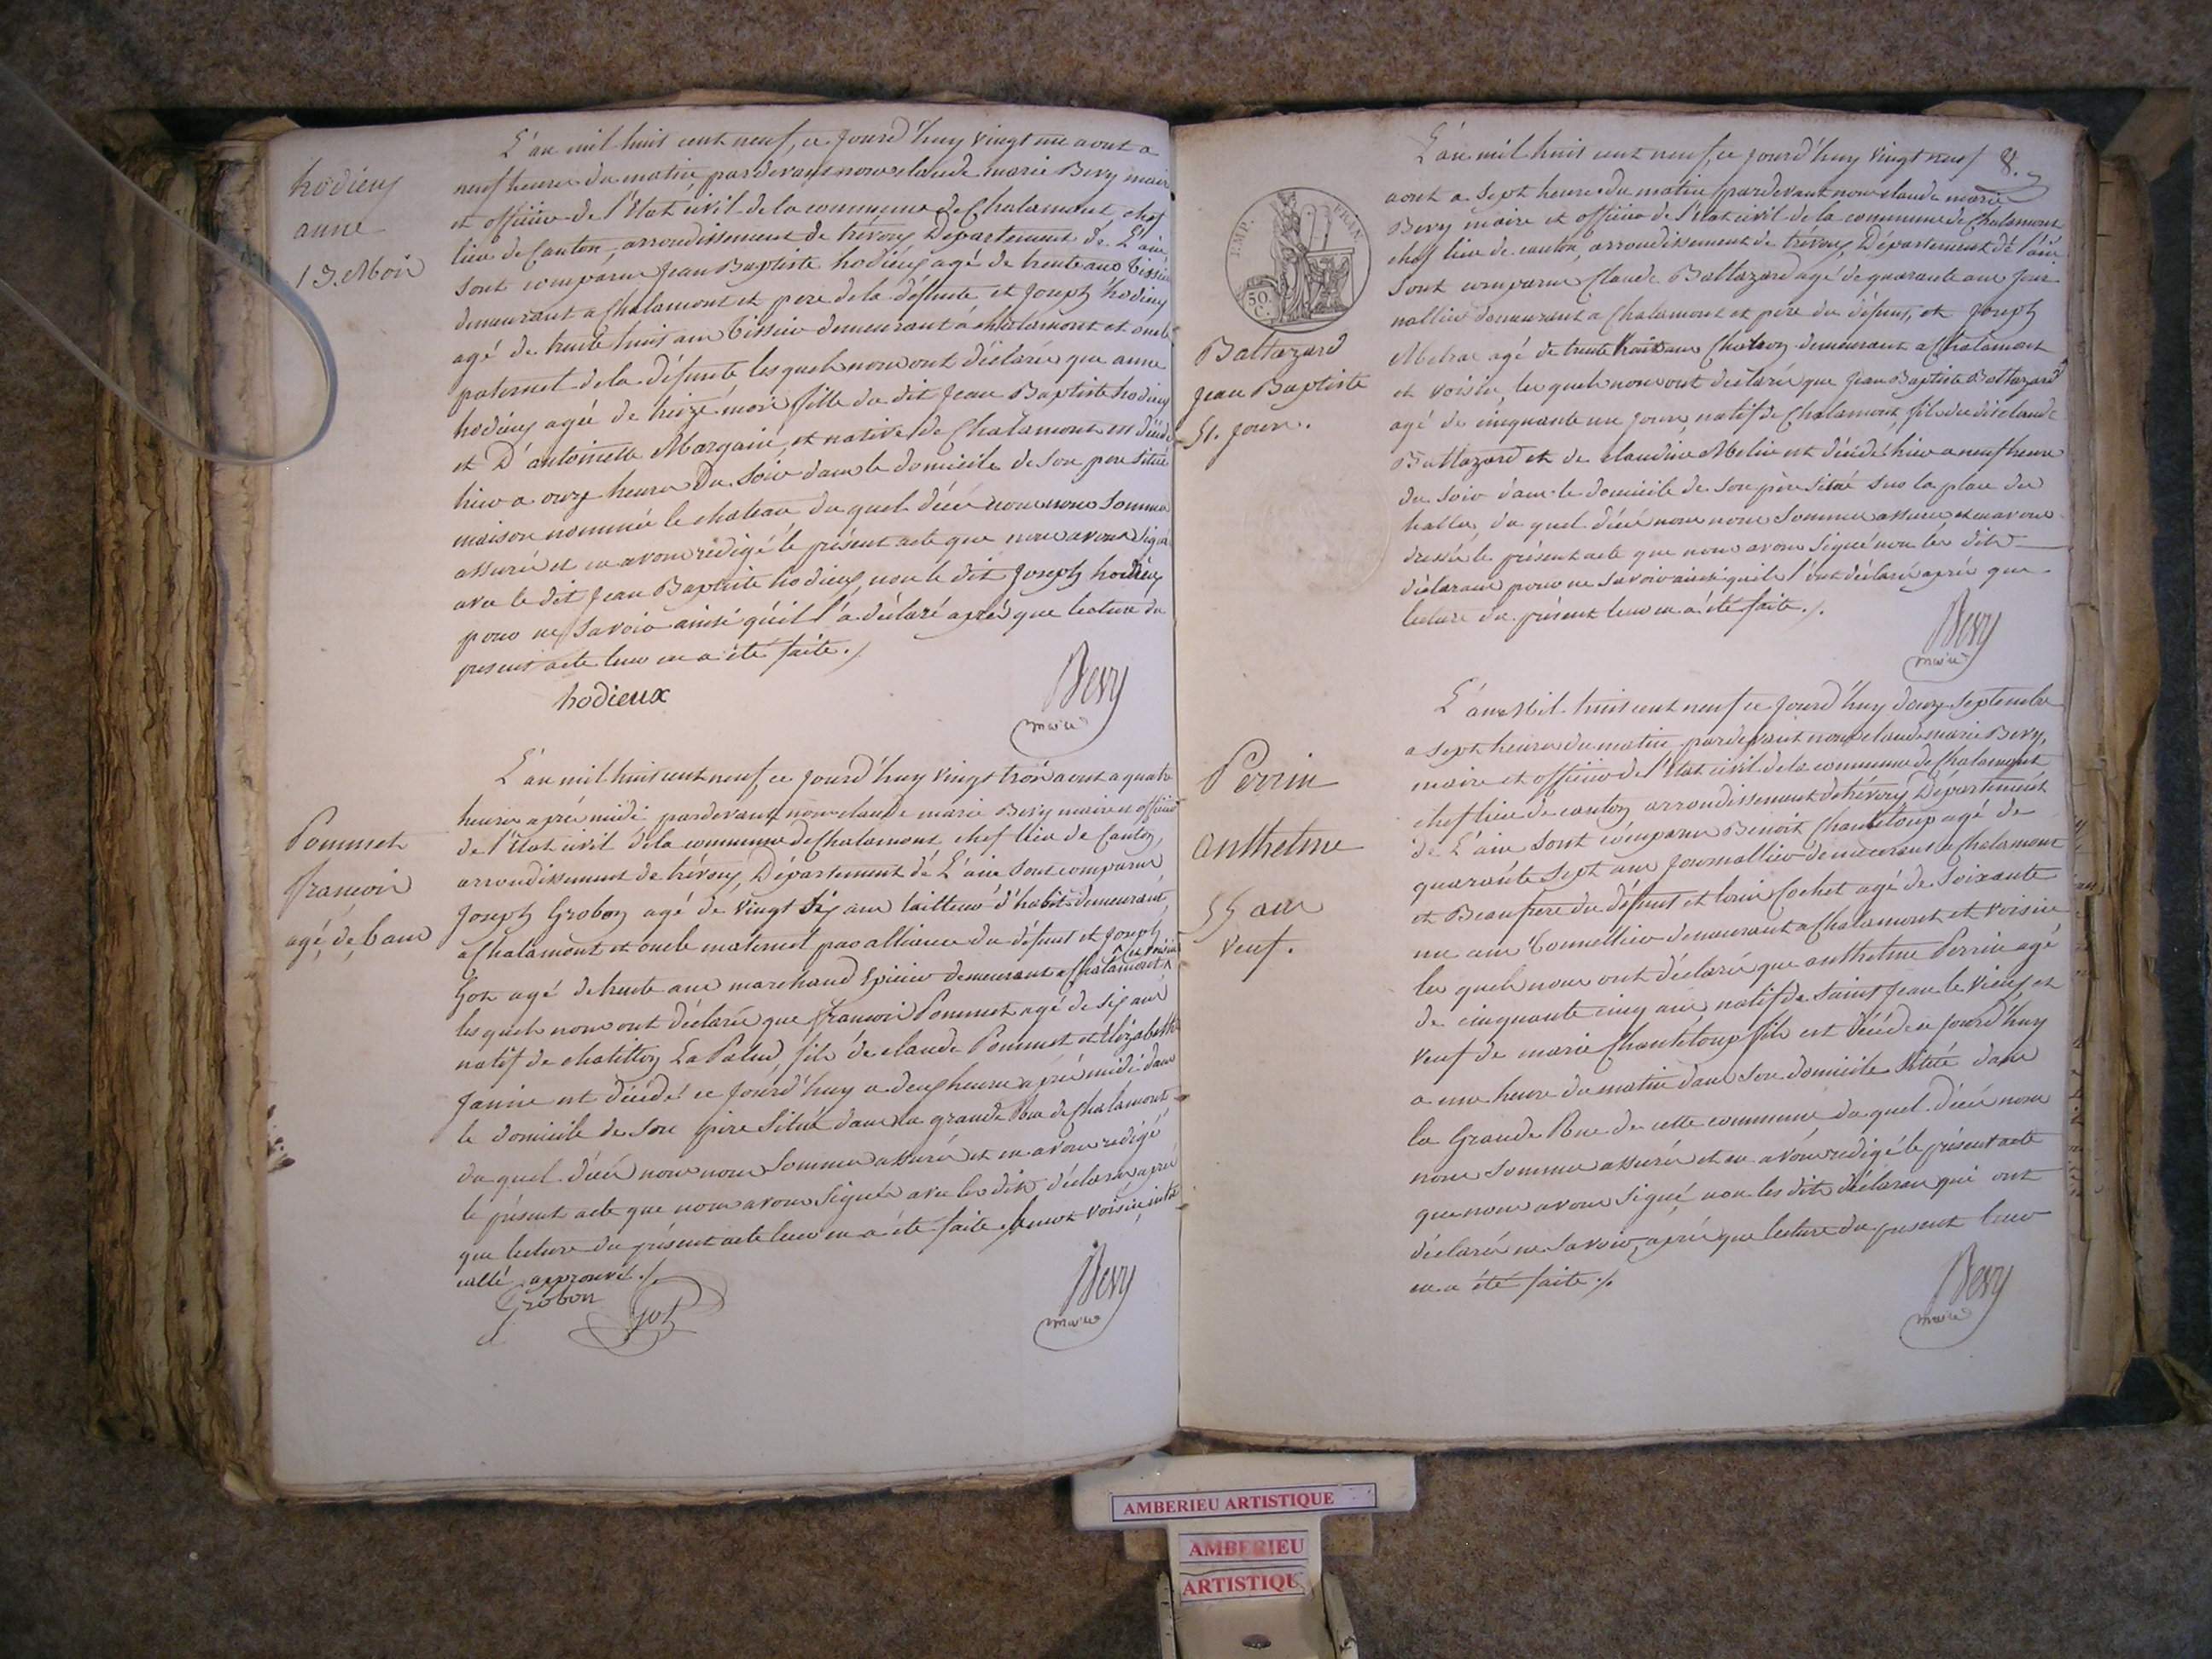 hodieux
anne
13 Mois
L'an mil huit cent neuf, ce jourd'huy vingt un aout a
neuf heures du matin, pardevant nous claude marie Bevy maire
et officier de l'Etat civil de la commune de Chalamont, chef
lieu de Canton, arrondissement de trévoux Département de L'ain,
sont comparus Jean Baptiste hodieux agé de trente ans tissier
demeurant a Chalamont et pere de la défunte, et Joseph hodieux
agé de trente huit ans tissier demeurant à chalamont et oncle
paternel de la défunte lesquels nous ont déclarés que anne
hodieux agée de treize mois fille du dit Jean Baptiste hodieux
et D'antoinette Margain, et native de Chalamont est décédé
hier a onze heures du soir dans le domicile de son pere situé
maison nommée le chateau du quel décés nous nous sommes
assurés et en avons rédigé le présent acte que nous avons signé
avec le dit Jean Baptiste hodieux, non le dit Joseph hodieux
pour ne savoir ainsi qu'il l'a déclaré aprés que lecture du
present acte leur en a été faite ./.
hodieux
Bevy
maire
Pommet
francois
agé de 6 ans
L'an mil huit cent neuf, ce jourd'huy vingt trois aout a quatre
heures aprés midi pardevant nous claude marie Bevy maire et officier
de l'Etat civil de la commune de Chalamont chef lieu de Canton,
arrondissement de trévoux, Département de L'ain sont comparus
Joseph Grobon agé de vingt six ans tailleur d'habits demeurant
a Chalamont et oncle maternel par alliance du défunt et Joseph
et voisin
Got agé de trente ans marchand Epicier demeurant a Chalamont
lesquels nous ont déclarés que francois Pommet agé de six ans
natif de chatillon La Palud, fils de claude Pommet et Elizabeth
Janin est décédé ce jourd'huy a deux heures aprés midi dans
le domicile de son pere situé dans la grande Rue de Chalamont
du quel décés nous nous sommes assurés et en avons redigé
le présent acte que nous avons signés avec les dits déclarans aprés
que lecture du présent acte leur en a été faite. le mot voisin inter
callé approuvé ./.
Grobon
Got
Bevy
maire
8.
EMP. FRAN.
50
C.
Baltazard
Jean Baptiste
51. jours.
L'an mil huit cent neuf, ce jourd'huy vingt neuf
aout a sept heures du matin pardevant nous claude marie
Bevy maire et officier de l'état civil de la commune de Chalamont
chef lieu de canton, arrondissement de trévoux, Département de l'ain
sont comparus Claude Baltazard agé de quarante ans jour
nallier demeurant a Chalamont et père du défunt, et Joseph
agé de trente huit ans Charon demeurant a Chalamont
et voisin, lesquels nous ont déclarés que Jean Baptiste Baltazard
agé de cinquante un jours, natif de Chalamont, fils du dit claude
Baltazard et de claudine Melin est décédé hier a neuf heures
du soir dans le domicile de son père situé sur la place des
halles, du quel décés nous nous sommes assurés et en avons
dressés le présent acte que nous avons signé non les dits
déclarans pour ne savoir ainsi qu'ils l'ont déclaré aprés que
lecture du présent leur en a été faite ./.
Bevy
maire
Perrin
anthelme
55 ans
veuf.
L'an Mil huit cent neuf ce jourd'huy douze septembre
a sept heures du matin pardevant nous claude marie Bevy,
maire et officier de l'Etat civil de la commune de Chalamont
chef lieu de canton arrondissement de trévoux, Département
de L'ain sont comparus Benoit Chanteloup agé de
quarante sept ans journallier demeurant a Chalamont
et Beaufrere du défunt et louis Cochet agé de soixante
un ans tonnellier demeurant a Chalamont et voisin
lesquels nous ont déclarés que anthelme Perrin agé
de cinquante cinq ans natif de saint Jean le Vieux, et
veuf de marie Chanteloup fils est décédé ce jourd'huy
a une heure du matin dans son domicile situé dans
la Grande Rue de cette commune, du quel décés nous
nous sommes assurés et en avons redigé le présent acte
que nous avons signé, non les dits déclarans qui ont
déclarés ne savoir, aprés que lecture du present leur
en a été faite ./.
Bevy
maire
AMBERIEU ARTISTIQUE
AMBERIEU
ARTISTIQUE